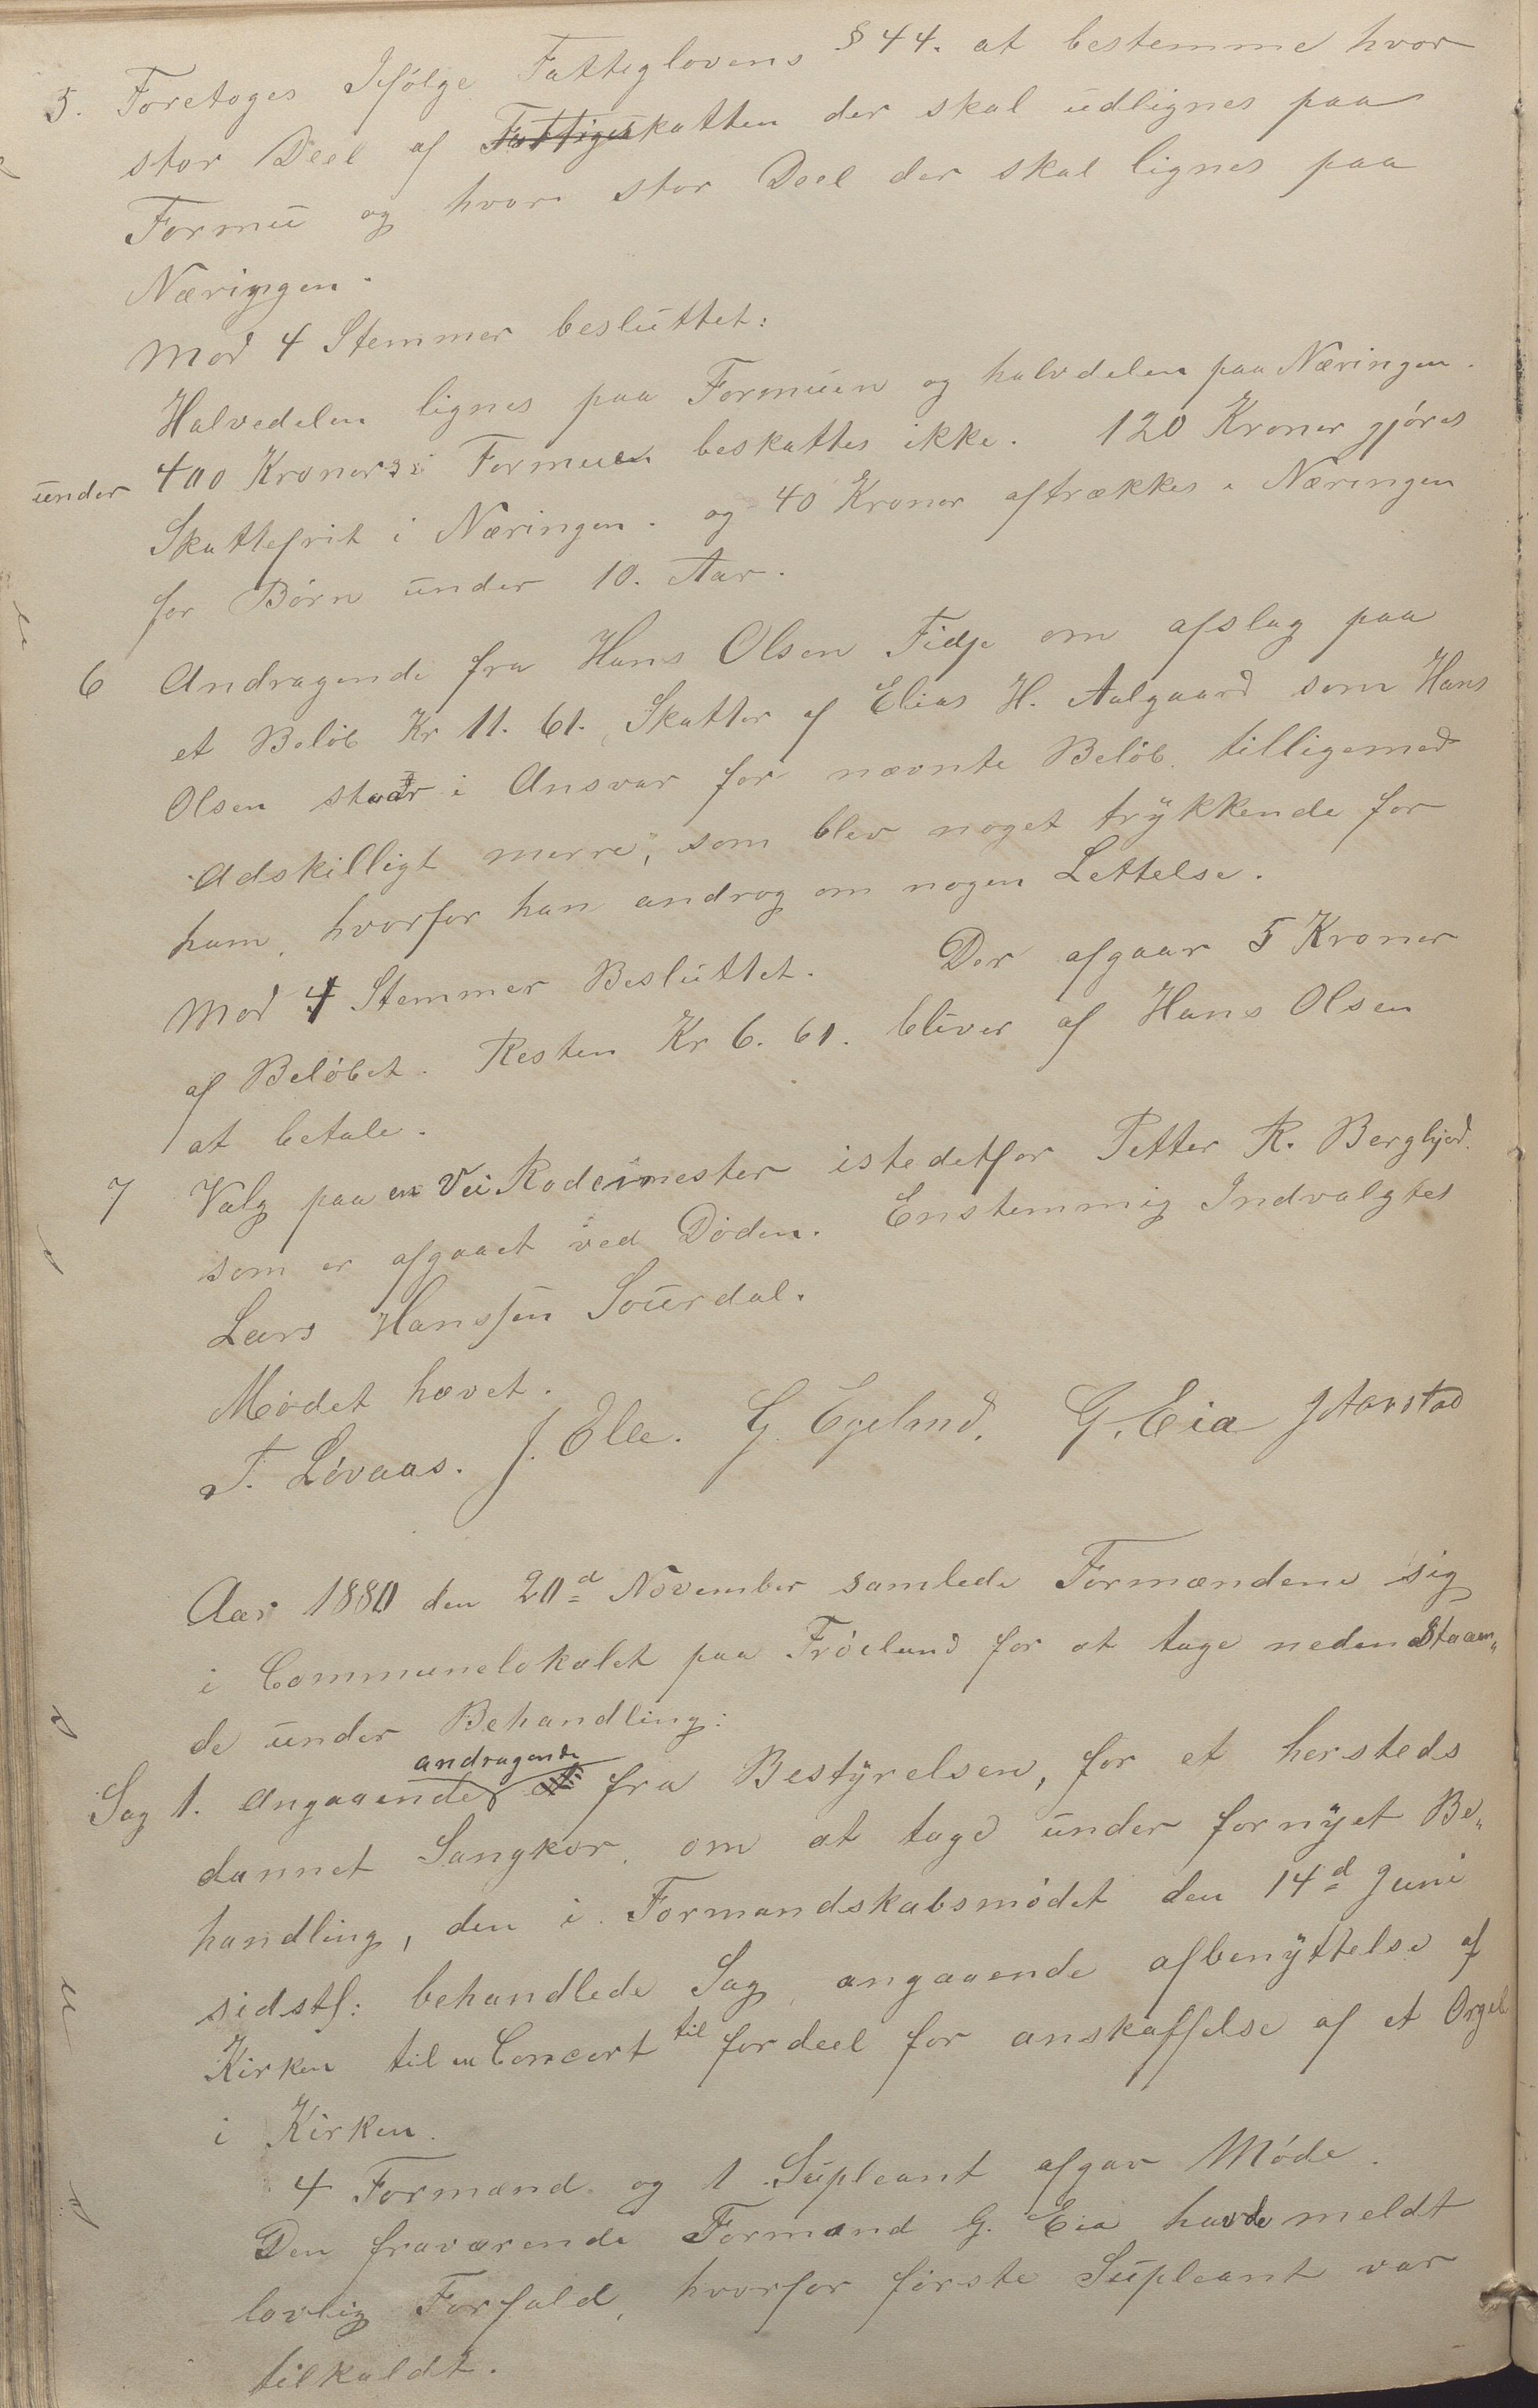 5. Foretoges Ifølge Fattiglovens § 44. at bestemme hvor
stor Deel af Fattigeskatten der skal udlignes paa
Formu og hvor stor Deel der skal lignes paa
Næringen.
Mod 4 Stemmer besluttet:
Halvedelen lignes paa Formuen og halvdelen paa Næringen.
under 400 Kroner i Formuen beskattes ikke. 120 Kroner gjøres
Skattefrit i Næringen. og 40 Kroner aftrækkes i Næringen
for Børn under 10. Aar.
6 Andragende fra Hans Olsen Fidje om afslag paa
et Beløb Kr 11. 61. Skatter af Elias H. Aalgaard som Hans
Olsen staar i Ansvar for nævnte Beløb. tilligemed
Adskilligt merre, som blev noget trykkende for
ham, hvorfor han androg om nogen Lettelse.
Mod 4 Stemmer Besluttet. Der afgaar 5 Kroner
af Beløbet. Resten Kr 6. 61. bliver af Hans Olsen
at betale.
7 Valg paa en Vei Rodemester istedetfor Petter R. Bergljod
som er afgaaet ved Døden. Enstemmig Indvalgtes
Lars Hanssen Souerdal.
Mødet hævet.
T. Løvaas. J. Elle. G. Egeland. G. Eia J Aarstad
Aar 1880 den 20d November samlede Formændene sig
i Communelokalet paa Frøeland for at tage nedenstaaen„
de under Behandling:
andragende
Sag 1. Angaaende fra Bestyrelsen, for et hersteds
dannet Sangkor, om at tage under fornyet Be„
handling, den i Formandskabsmødet den 14d Juni
sidstl: behandlede Sag, angaaende afbenyttelse af
Kirken til en Concert til fordeel for anskaffelse af et Orgel
i Kirken.
4 Formænd og 1 Supleant afgav Møde.
Den fraværende Formand G. Eia havde meldt
lovlig Forfald, hvorfor første Supleant var
tilkaldt.